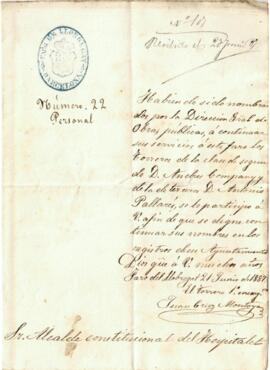 Nº 101
Recibido el 23 junio 87
FARO DEL LLOBREGAT
Número. 22
Personal
Habiendo sido nombra-
dos, por la Direccion Gral de
Obras públicas, á continuar
sus servicios á este faro los
torreros de la clase de segun-
do D. Company y
de la de tercera D. Antonio
Pallarés, se lo participo á
V. á fin de que se digne con-
tinuar sus nombres en los
registros de ese Ayuntamiento
Dios gue á V. muchos años
Faro del Llobregat 21 Junio de 1887.
El torrero 1º encargº
Juan Cruz
Sr. Alcalde constitucional del Hospitalet